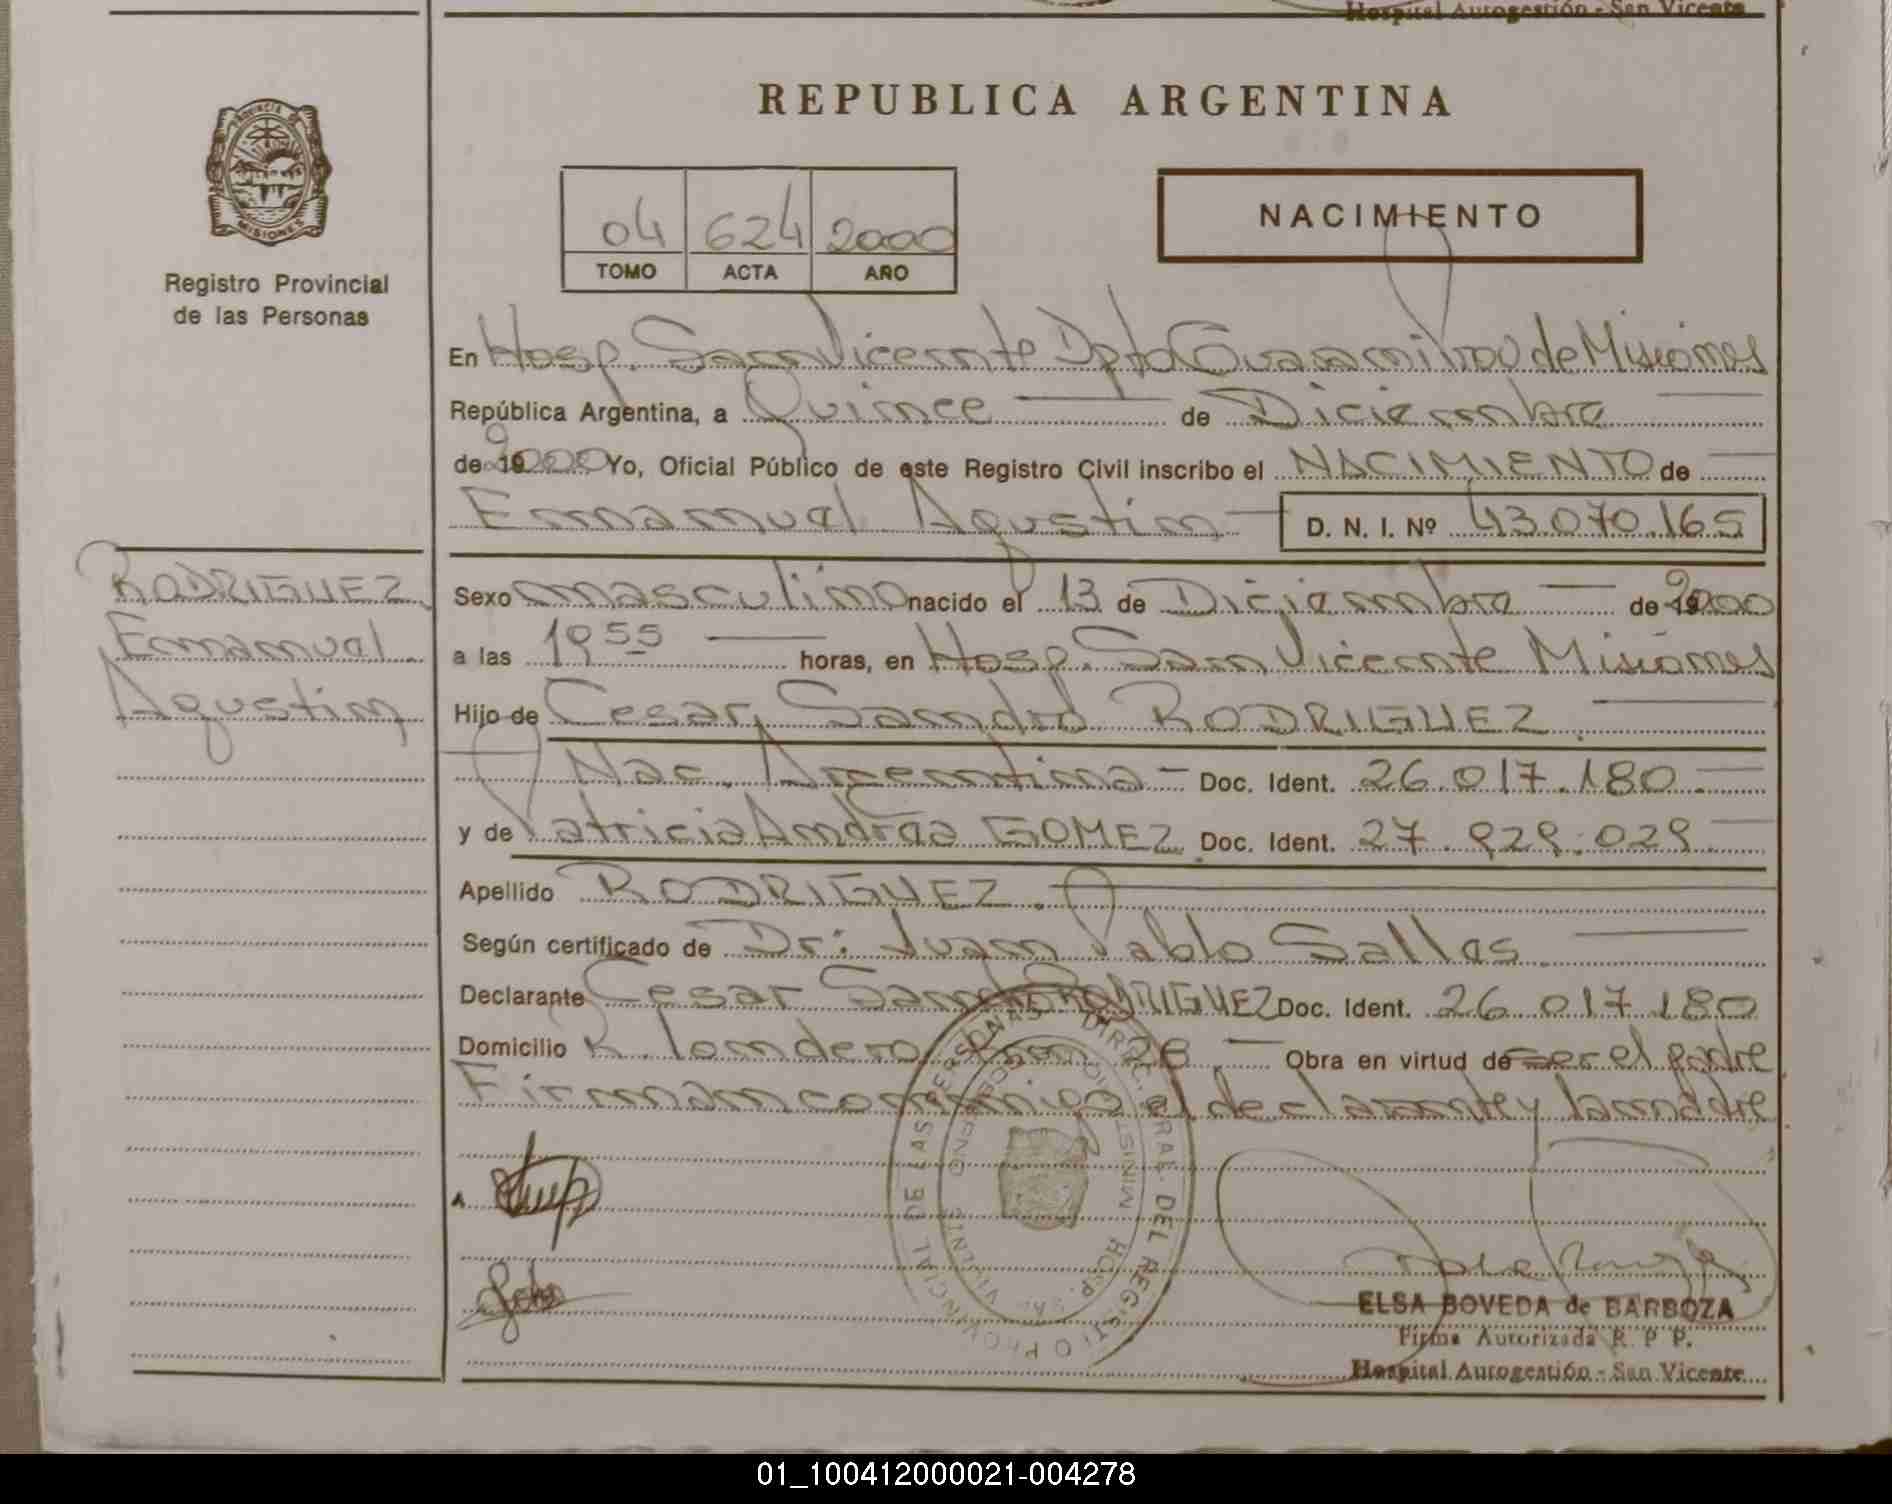 Hospital Autogestión - San Vicente
REPUBLICA ARGENTINA
PROVINCIA DE
MISIONES
Registro Provincial
de las Personas
04 624 2000
TOMO ACTA AÑO
NACIMIENTO
En Hosp. San Vicente Dpto Guarani Prov de Misiones
República Argentina, a Quince de Diciembre
de 19 2000 Yo, Oficial Público de este Registro Civil inscribo el NACIMIENTO de
Emmanuel Agustin D. N. I. Nº 43.070.165
RODRIGUEZ
Emmanuel
Agustin
Sexo masculino nacido el 13 de Diciembre de 19 2000
a las 19 55 horas, en Hosp. San Vicente Misiones
Hijo de Cesar Sandro RODRIGUEZ
Nac. Argentina - Doc. Ident. 26.017.180
y de Patricia Andrea GOMEZ Doc. Ident. 27.929.029
Apellido RODRIGUEZ.
Según certificado de Dr: Juan Pablo Sallas
Declarante Cesar Sandro RODRIGUEZ Doc. Ident. 26 017 180
Domicilio R. Londero 28 Obra en virtud de ser el padre
Firman conmigo el declarante y la madre
DIREC. GRAL. DEL REGISTRO PROVINCIAL DE LAS PERSONAS
ELSA BOVEDA de BARBOZA
Firma Autorizada R. P. P.
Hospital Autogestión - San Vicente
01_100412000021-004278